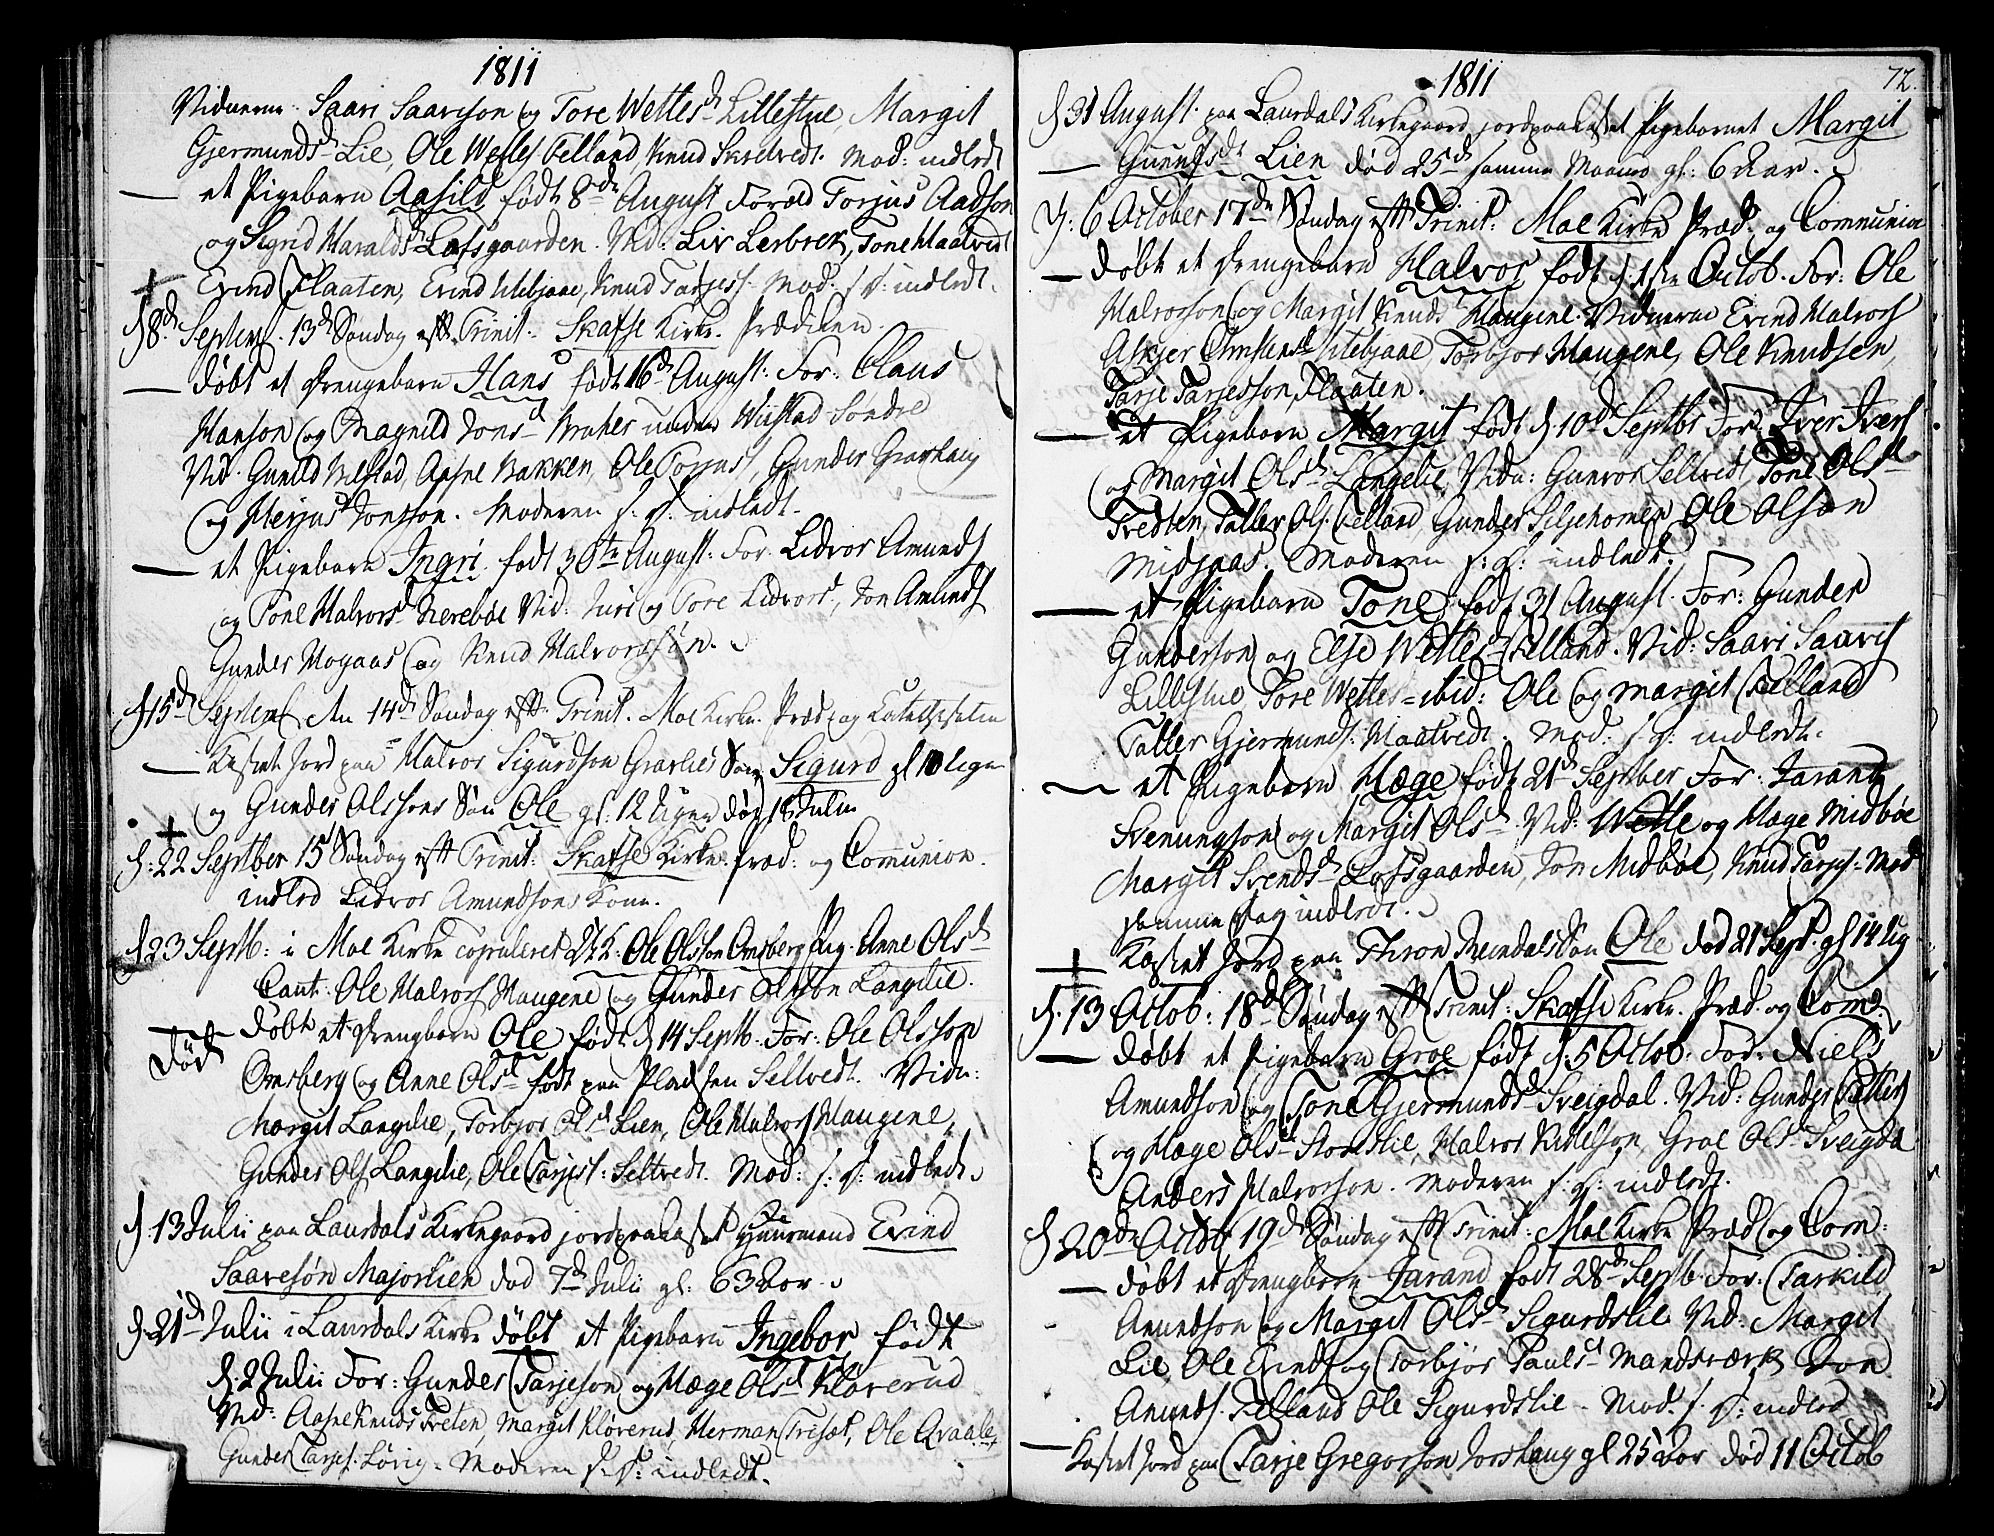 1811
Vidnerne Saari Saaveson og Tore Wetlesd Lillestue, Margit
Gjermundsd Lie, Ole Wetles Felland, Knud Skrelvedt. Mod: indledt
et Pigebarn Aasild født 8de August Foræld Torjus Aadson
og Sigrid Haraldsd Lofsgaarden. Vid: Liv Lerbrek, Tone Maatvedt
Evind Flaaten, Evind Utebjaae, Knud Tarjes. Mod: s: D: indledt.
d 8de Septem. 13de Søndag eft. Trinit. Skafse Kirke. Prædiken.
døbt et Drengebarn Hans født 16de August: For: Claus
Hanson og Ragnild Jonsd Brukes under Wistad Søndre
Vid. Gunild Wistad, Aasne Bakken, Ole Torjus, Gunder Gravhaug
og Herjus Jonsson. Moderen s. D: indledt.
et Pigebarn Ingri. født 30te August: For. Lidvor Amunds
og Tone Halvorsd Nerebøe Vid: Juri og Tore Lidvord, Jon Amunds
Gunder Mogaas og Knud Halvordsøn.
d 15de Septem den 14de Søndag eft. Trinit. Moe Kirke. Præd: og Catechisation
Kastet Jord paa Halvor Sigurdson Gravlies Søn Sigurd gl 10 Uger
og Gunder Olssons Søn Ole gl: 12 Uger død 18 Julii
d: 22 Septber 15 Søndag eft Trinit: Skafse Kirke. præd: og Communion.
indled Lidvor Amundsons Kone.
d 23 Septb: i Moe Kirke Copuleret Ole Olsson Omsberg Pig. Anne Olsd
Caut: Ole Halvors Haugene og Gunder Olsson Langelie.
døbt et Drengbarn Ole født d 14 Septb: For: Ole Olsson
Død
Omsberg og Anne Olsd født paa Pladsen Seltvedt. Vidn:
Margit Langelie, Torbjør Olsd Lien, Ole Halvors Haugene,
Gunder Ols Langelie, Ole Tarjes: Seltvedt. Mod: s: D: indledt.
d. 13 Julii paa Laurdals Kirkegaard jordpaakastet Huusmand Evind
Saavesøn Majorlien død 7de Julii gl: 63 Aar.
d. 21de Julii i Laurdals Kirke døbt et Pigebarn Ingebor født
d. 2 Julii For: Gunder Tarjeson og Hæge Olsd Kloverud
Vid: Aasne Knuds Treten, Margit Kløverud, Herman Trisæt, Ole Qvaale,
Gunder Tarjes. Lørig. Moderen s: D: indledt.
1811
72.
d 31 August. paa Laurdals Kirkegaard jordpaakastet Pigebarnet Margit
Gunulfsdt Lien død 25de samme Maaned gl: 6 Aar.
d: 6 October 17de Søndag eft Trinit: Moe Kirke Præd: og Communion
døbt et Drengebarn Halvor født d 1ste Octob. For: Ole
Halvorson og Margit Knuds Haugene. Vidnerne Evind Halvors
Asbjer Omsensd Utebjaae, Torbjor Haugene, Ole Knudsen,
Tarje Tarjesson Flaaten.
et Pigebarn Margit født d 10de Septbr For. Iver Ivers
og Margit Olsd Langelie, Vidn: Gunvor Seltvedt, Tone Olsd
Tredten, Tallev Ols. Felland, Gunder Siljehomen Ole Olson
Midjaas. Moderen s: D: indledt.
et Pigebarn Tone født 31 August. For: Gunder
Gunderson og Else Wetlesd Felland. Vid: Saari Saaves
Lillestue, Tore Wetles ibid: Ole og Margit Felland
Tallev Gjermunds: Maatvedt. Mod: s: D: indledt.
et Pigebarn Hæge født 21de Septber For: Jarand
Svenungson og Margit Olsd. Vid: Wetle og Hæge Midbøe
Margit Svendsd Lofsgaarden, Jon Midbøe, Knud Tarjes. Mod
samme Dag indledt.
Kastet Jord paa Thron Søn Ole død 21 Sept. gl 14 Ug
d. 13 Octob: 18de Søndag eft Trinit: Skafse Kirke. Præd. og Com:
døbt et Pigebarn Groe født d. 5 Octob: For: Niels
Amundson og Tone Gjermundsd Sveigdal. Vid: Gunder Tallevs
og Hæge Olsd Storeslie, Halvor Kittelson, Groe Olsd Sveigda
Anders Halvorson. Moderen s: D: indledt.
d 20de Octobr 19de Søndag eft Trinit: Moe Kirke Præd og Com:
døbt et Drengbarn Jarand født 28de Septb. For. Tarkild
Amundson og Margit Olsd Sigurdslie Vid: Margit
Lie, Ole Evinds og Torbjør Paulsd Mandsværk, Jon
Amunds. Felland Ole Sigurdslie - Mod. s. D: indled
Kastet Jord paa Tarje Gregorson Jorshaug gl 25 Aar død 11 Octob